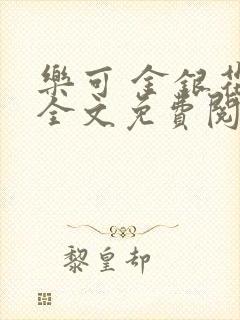 樂可 金銀花
全文免費閱
黎皇却